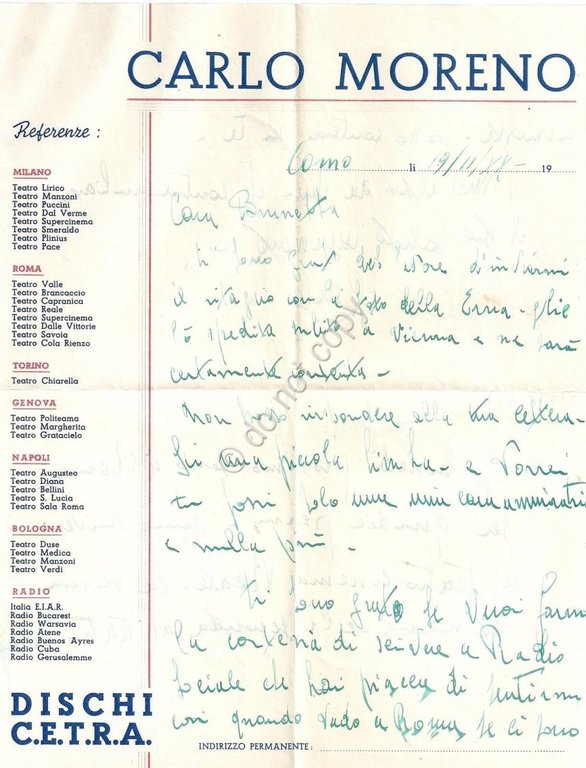 CARLO MORENO
Referenze :
MILANO
Teatro Lirico
Teatro Manzoni
Teatro Puccini
Teatro Dal Verme
Teatro Supercinema
Teatro Smeraldo
Teatro Plinius
Teatro Pace
ROMA
Teatro Valle
Teatro Brancaccio
Teatro Capranica
Teatro Reale
Teatro Supercinema
Teatro Dalle Vittorie
Teatro Savoia
Teatro Cola Rienzo
TORINO
Teatro Chiarella
GENOVA
Teatro Politeama
Teatro Margherita
Teatro Grataciclo
NAPOLI
Teatro Augusteo
Teatro Diana
Teatro Bellini
Teatro S. Lucia
Teatro Sala Roma
BOLOGNA
Teatro Duse
Teatro Medica
Teatro Manzoni
Teatro Verdi
RADIO
Italia E.I.A.R.
Radio Bucarest
Radio Warsavia
Radio Atene
Radio Buenos Ayres
Radio Cuba
Radio Gerusalemme
DISCHI
C.E.T.R.A.
Como li 19/11/XX - 19
Cara Brunetta
ti sono d'inviarmi
il ritaglio con la foto della Erna - glie
l'ò spedita subito a Vienna e ne sarà
certamente contenta -
Non posso rispondere alla tua lettera -
Sei una piccola bimba - e vorrei
tu fossi solo una mia cara ammiratrice
e nulla più -
Ti sono grato se vuoi farmi
la cortesia di scrivere a Radio
Sociale che hai piacere di sentirmi
così quando vado a Roma se ci sono
INDIRIZZO PERMANENTE :
© do not copy